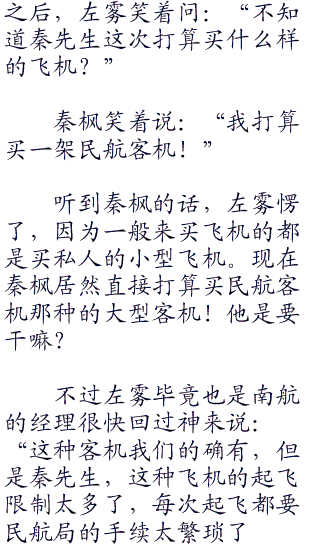 之后，左雾笑着问：“不知
道秦先生这次打算买什么样
的飞机？”
秦枫笑着说：“我打算
买一架民航客机！”
听到秦枫的话，左雾愣
了，因为一般来买飞机的都
是买私人的小型飞机。现在
秦枫居然直接打算买民航客
机那种的大型客机！他是要
干嘛？
不过左雾毕竟也是南航
的经理很快回过神来说：
“这种客机我们的确有，但
是秦先生，这种飞机的起飞
限制太多了，每次起飞都要
民航局的手续太繁琐了